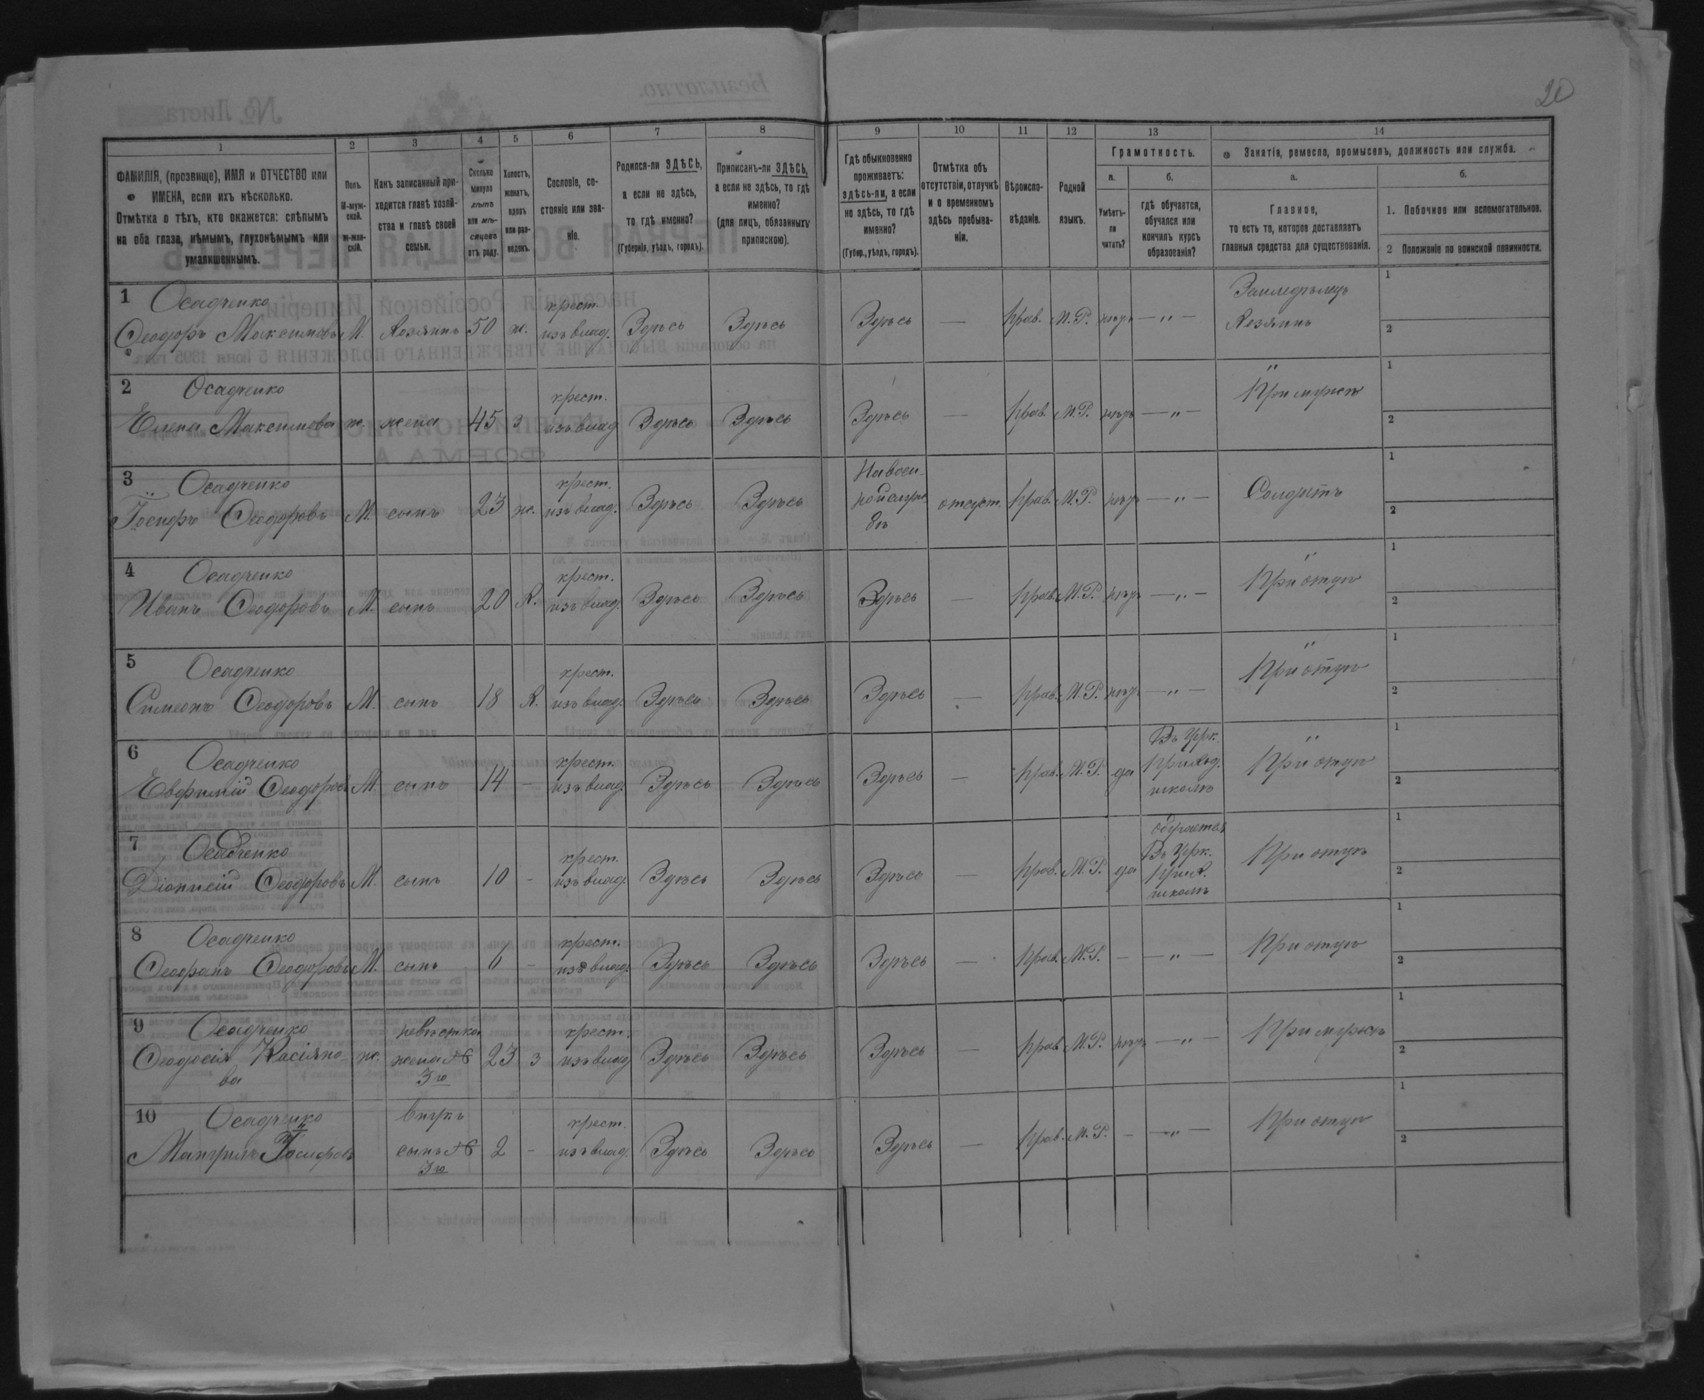 20
1
2
3
4
5
6
7
8
9
10
11
12
13
14
ФАМИЛІЯ, (прозвище), ИМЯ и ОТЧЕСТВО или
ИМЕНА, если ихъ нѣсколько.
Отмѣтка о тѣхъ, кто окажется: слѣпымъ
на оба глаза, нѣмымъ, глухонѣмымъ или
умалишеннымъ.
Полъ.
М-муж-
ской.
ж-жен-
скій.
Какъ записанный при-
ходится главѣ хозяй-
ства и главѣ своей
семьи.
Сколько
минуло
лѣтъ
или мѣ-
сяцевъ
отъ роду.
Холостъ,
женатъ,
вдовъ
или раз-
веденъ.
Сословіе, со-
стояніе или зва-
ніе.
Родился-ли ЗДѢСЬ,
а если не здѣсь,
то гдѣ именно?
(Губернія, уѣздъ, городъ).
Приписанъ-ли ЗДѢСЬ,
а если не здѣсь, то гдѣ
именно?
(для лицъ, обязанныхъ
припискою).
Гдѣ обыкновенно
проживаетъ:
здѣсь-ли, а если
не здѣсь, то гдѣ
именно?
(Губер., уѣздъ, городъ).
Отмѣтка объ
отсутствіи, отлучкѣ
и о временномъ
здѣсь пребыва-
ніи.
Вѣроиспо-
вѣданіе.
Родной
языкъ.
Грамотность.
а.
Умѣетъ-
ли
читать?
б.
гдѣ обучается,
обучался или
кончилъ курсъ
образованія?
Занятіе, ремесло, промыселъ, должность или служба.
а.
Главное,
то есть то, которое доставляетъ
главныя средства для существованія.
б.
1. Побочное или вспомогательное.
2 Положеніе по воинской повинности.
1 Осадченко
Ѳеодоръ Максимовъ М. Хозяинъ 50 ж. крест. изъ влад. Здѣсь Здѣсь Здѣсь — прав. М.Р. нѣтъ — „ — Земледѣлецъ Хозяинъ 1 2
2 Осадченко
Елена Максимова ж. жена 45 з крест. изъ влад. Здѣсь Здѣсь Здѣсь — прав. М.Р. нѣтъ — „ — При мужѣ 1 2
3 Осадченко
Іосифъ Ѳеодоровъ М. сынъ 23 ж. крест. изъ влад. Здѣсь Здѣсь отсутст. прав. М.Р. нѣтъ — „ — Солдатъ 1 2
4 Осадченко
Иванъ Ѳеодоровъ М. сынъ 20 Х. крест. изъ влад. Здѣсь Здѣсь Здѣсь — прав. М.Р. нѣтъ — „ — При отцѣ 1 2
5 Осадченко
Симеонъ Ѳеодоровъ М. сынъ 18 Х. крест. изъ влад. Здѣсь Здѣсь Здѣсь — прав. М.Р. нѣтъ — „ — При отцѣ 1 2
6 Осадченко
Евфимій Ѳеодоровъ М. сынъ 14 - крест. изъ влад. Здѣсь Здѣсь Здѣсь — прав. М.Р. да Въ Црк. приход. школѣ При отцѣ 1 2
7 Осадченко
Діонисій Ѳеодоровъ М. сынъ 10 - крест. изъ влад. Здѣсь Здѣсь Здѣсь — прав. М.Р. да обучается Въ Црк. прих. школѣ При отцѣ 1 2
8 Осадченко
Ѳеодоровъ М. сынъ 6 - крест. изъ влад. Здѣсь Здѣсь Здѣсь — прав. М.Р. - — „ — При отцѣ 1 2
9 Осадченко
Ѳеодосія Касіяно-
ва ж. невѣстка жена № 3го 23 з крест. изъ влад. Здѣсь Здѣсь Здѣсь — прав. М.Р. нѣтъ — „ — При мужѣ 1 2
10 Осадченко
Іосифовъ внукъ сынъ № 3го 2 - крест. изъ влад. Здѣсь Здѣсь Здѣсь — прав. М.Р. - — „ — При отцѣ 1 2